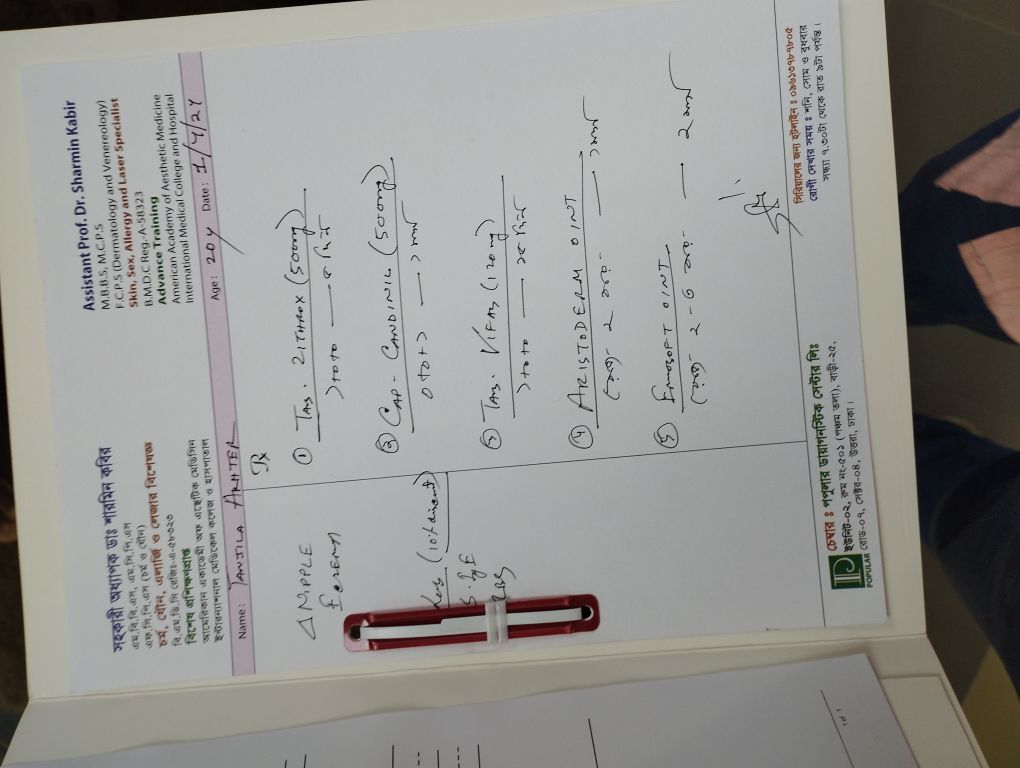 সহকারী অধ্যাপক ডাঃ শারমিন কবির
এম.বি.বি.এস, এম.সি.পি.এস
এফ.সি.পি.এস (চর্ম ও যৌন)
চর্ম, যৌন, এলার্জি ও লেজার বিশেষজ্ঞ
বি.এম.ডি.সি রেজিঃ-এ-৫৮৩২৩
বিশেষ প্রশিক্ষণপ্রাপ্ত
আমেরিকান একাডেমী অফ এস্থেটিক মেডিসিন
ইন্টারন্যাশনাল মেডিকেল কলেজ ও হাসপাতাল
Assistant Prof. Dr. Sharmin Kabir
M.B.B.S, M.C.P.S
F.C.P.S (Dermatology and Venereology)
Skin, Sex, Allergy and Laser Specialist
B.M.D.C Reg.-A-58323
Advance Training
American Academy of Aesthetic Medicine
International Medical College and Hospital
Name: TANJILA AKHTER Age: 20y Date: 1/4/24
Δ NIPPLE
Eczema
(10% discount)
S. IgE
RBS
Rx
① TAB. ZITHROX (500mg)
১+০+০ — ৫ দিন
② CAP- (500mg)
০+০+১ — ১ মাস
③ TAB. VIFAS (120mg)
১+০+০ — ১৫ দিন
④ ARISTODERM OINT
২ বার — ১ মাস
⑤ EMOSOFT OINT
২-৩ বার — ২ মাস
POPULAR
চেম্বার ঃ পপুলার ডায়াগনস্টিক সেন্টার লিঃ
ইউনিট-০২, রুম নং-৫০১ (পঞ্চম তলা), বাড়ী-২৫,
রোড-০৭, সেক্টর-০৪, উত্তরা, ঢাকা।
সিরিয়ালের জন্য হটলাইন ঃ ০৯৬১৩৭৮৭৮০৫
রোগী দেখার সময় ঃ শনি, সোম ও বুধবার
সন্ধ্যা ৭.৩০টা থেকে রাত ৯টা পর্যন্ত।